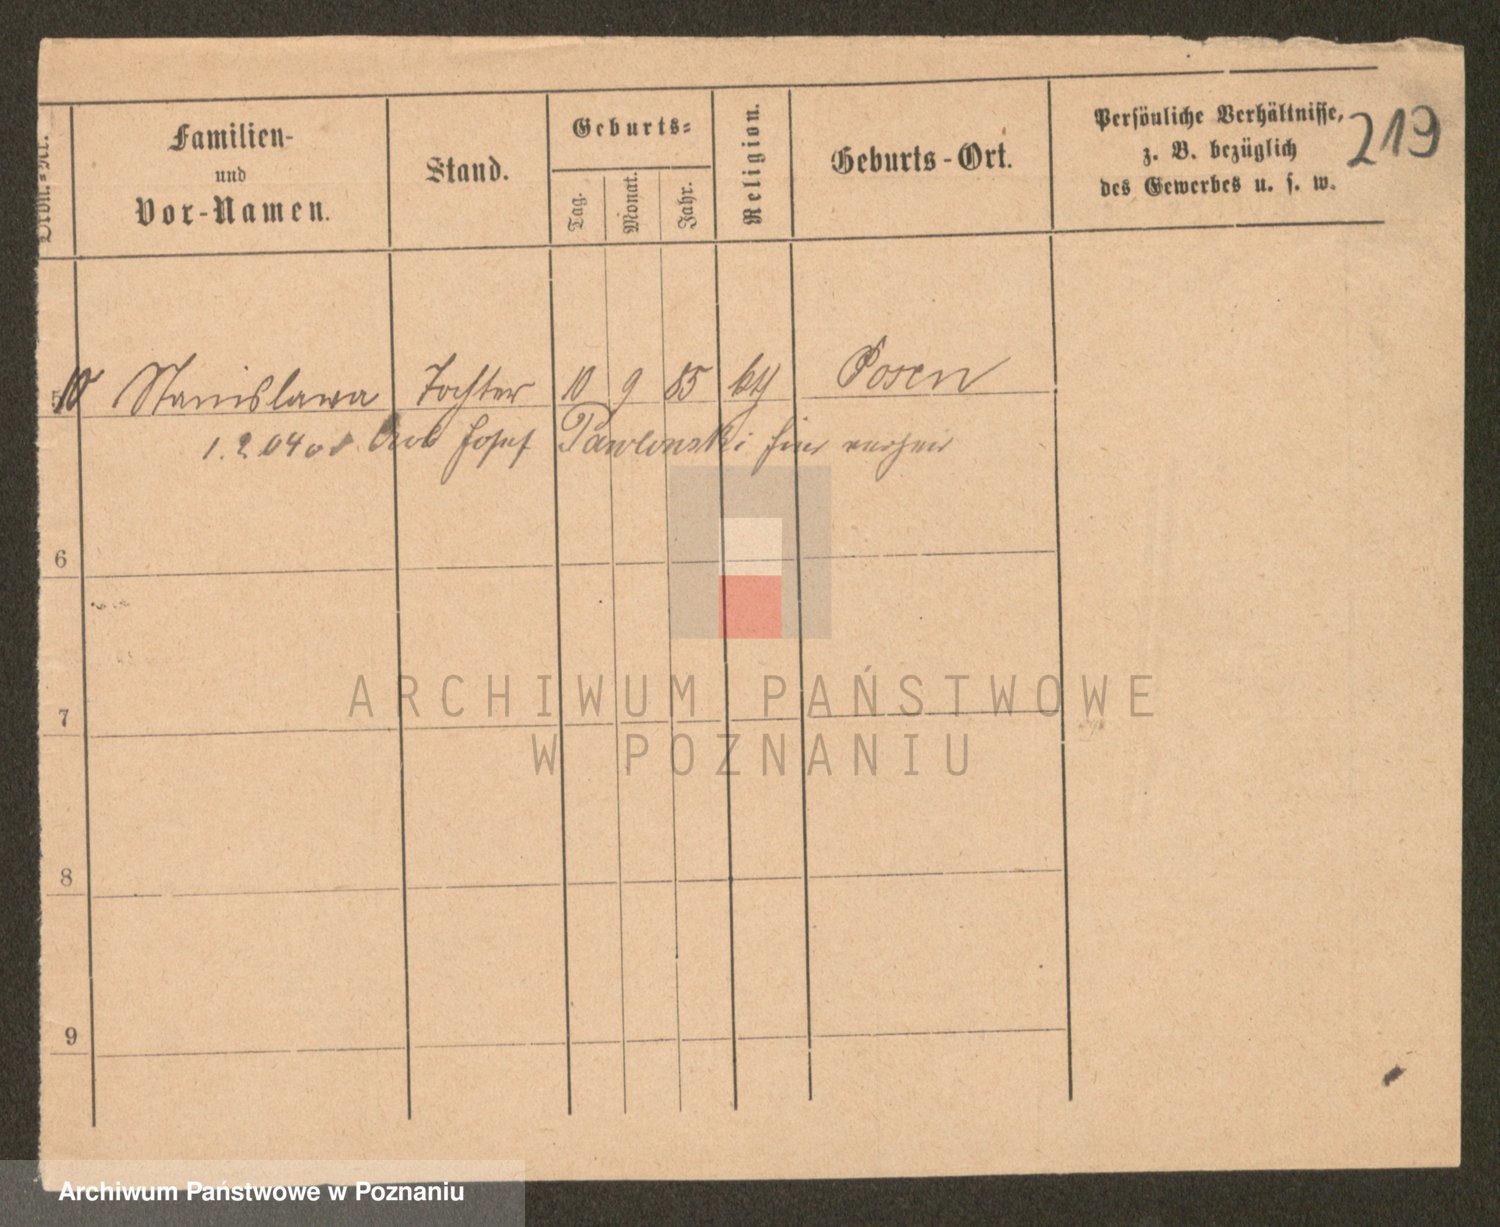 219
Dron.-Nr.
Familien-
und
Vor-Namen.
Stand.
Geburts-
Tag.
Monat.
Jahr.
Religion.
Geburts-Ort.
Persönliche Verhältnisse,
z. B. bezüglich
des Gewerbes u. s. w.
10 Stanislawa Tochter 10 9 85 Posen
1.2.04 Josef Pawlonski hier
6
7
8
9
ARCHIWUM PAŃSTWOWE
W POZNANIU
Archiwum Państwowe w Poznaniu